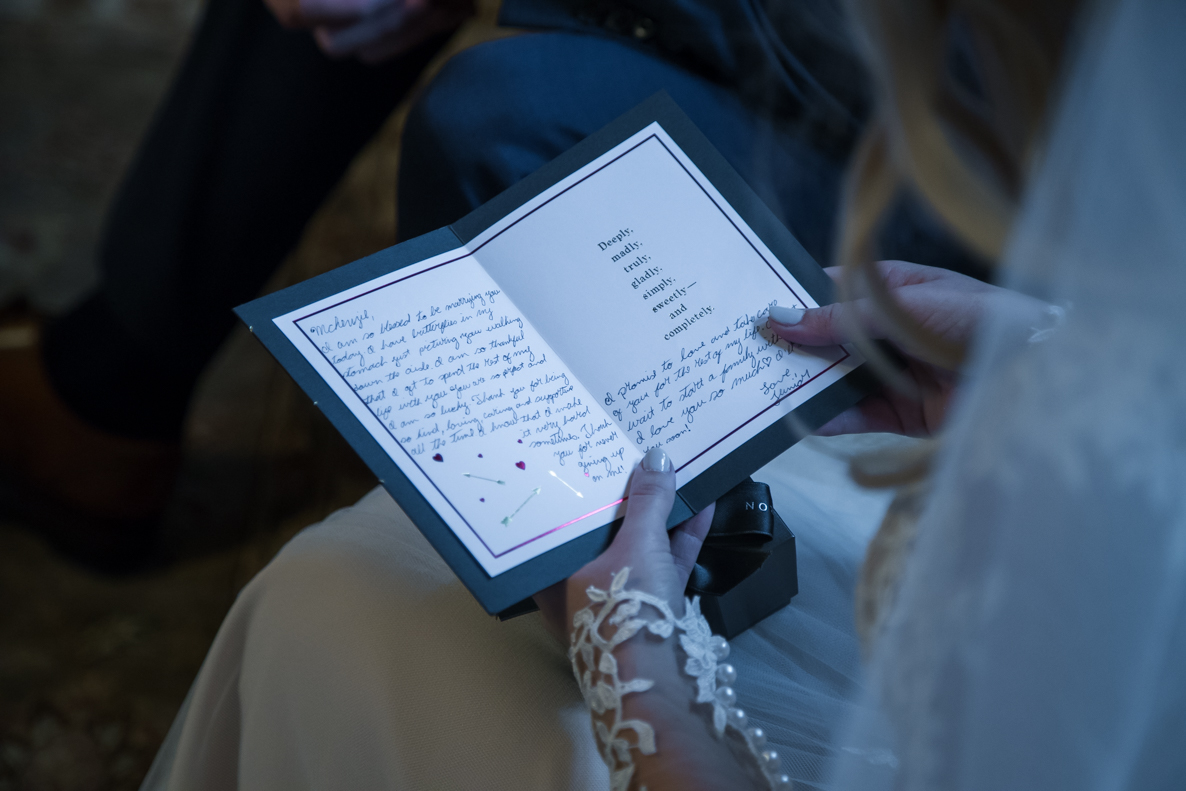 Mckenzie,
I am so blessed to be marrying you
today I have butterflies in my
stomach just picturing you walking
down the aisle. I am so thankful
that I get to spend the rest of my
life with you. You are so perfect and
I am so lucky. Thank you for being
so kind, loving, caring and supportive
all the time. I know that I made
it very hard
sometimes. Thank
you for never
giving up
on me!
Deeply,
madly,
truly,
gladly,
simply,
sweetly—
and
completely.
I promise to love and take care
of you for the rest of my life. I
want to start a family with
I love you so much♡
you soon!
Love,
NO